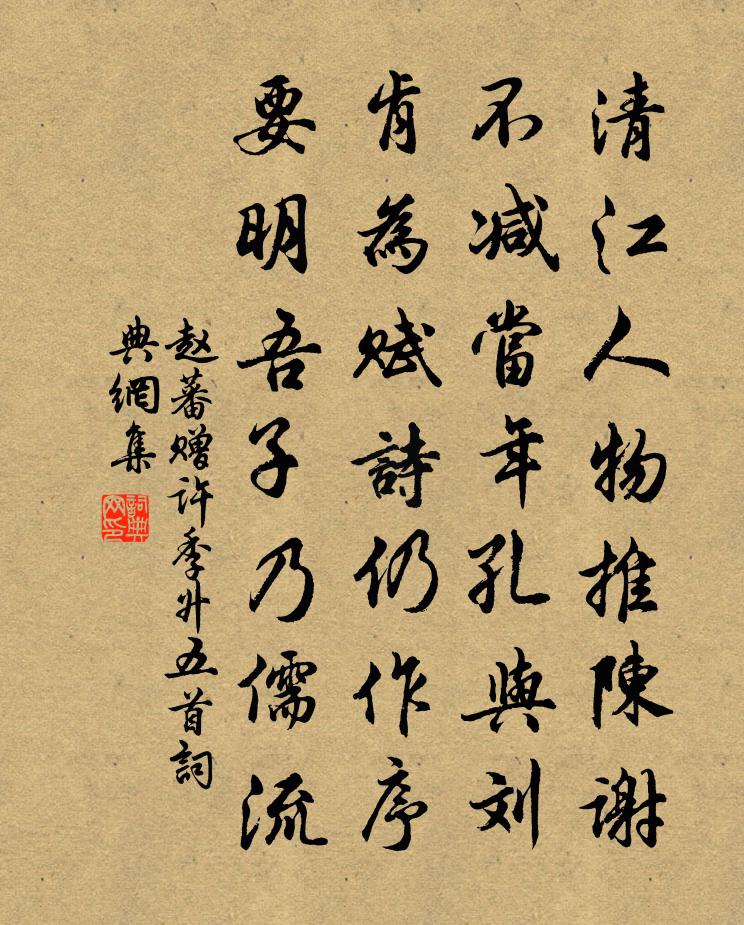 清江人物推陳謝
不减當年孔與刘
肯為赋詩仍作序
要明吾子乃儒流
赵蕃赠许季升五首詞
典網集
詞典
网印